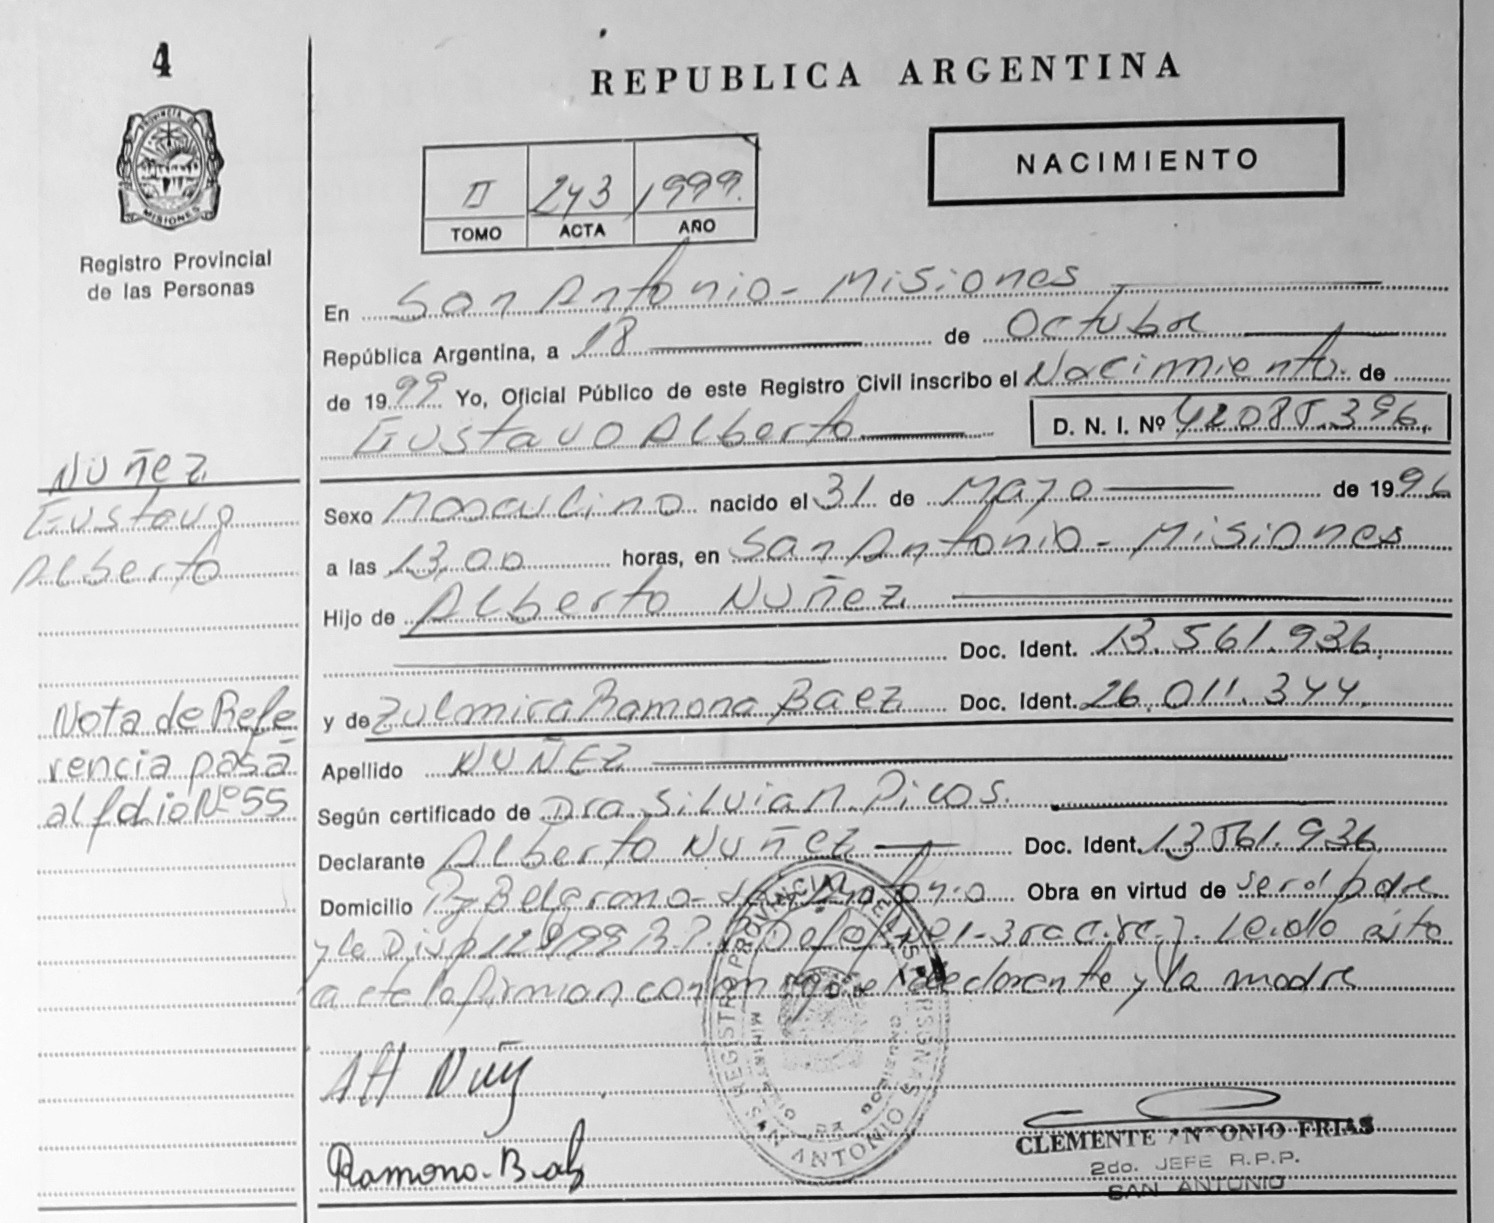 4
REPUBLICA ARGENTINA
PROVINCIA DE
MISIONES
Registro Provincial
de las Personas
NACIMIENTO
II 243 1999.
TOMO ACTA AÑO
En San Antonio - Misiones
República Argentina, a 18 de Octubre
de 1999 Yo, Oficial Público de este Registro Civil inscribo el Nacimiento de
Gustavo Alberto D. N. I. Nº 42085.396.
Nuñez
Gustavo
Alberto
Sexo Masculino nacido el 31 de Mayo de 1996
a las 13,00 horas, en San Antonio - Misiones
Hijo de Alberto Nuñez
Doc. Ident. 13.561.936.
y de Zulmira Ramona Baez Doc. Ident. 26.011.344.
Nota de Refe
rencia pasa
al folio Nº 55
Apellido NUÑEZ
Según certificado de Dra Silvia N. Picos.
Declarante Alberto Nuñez Doc. Ident. 13561.936
Domicilio Belgrano - San Antonio Obra en virtud de ser el padre
y la Disp 129/99 Leido ésta
acta la firman conmigo el declarante y la madre
REGISTRO PROVINCIAL DE LAS PERSONAS
MINISTERIO DE GOBIERNO
SAN ANTONIO
Ramona Baez
CLEMENTE ANTONIO FRIAS
2do. JEFE R.P.P.
SAN ANTONIO